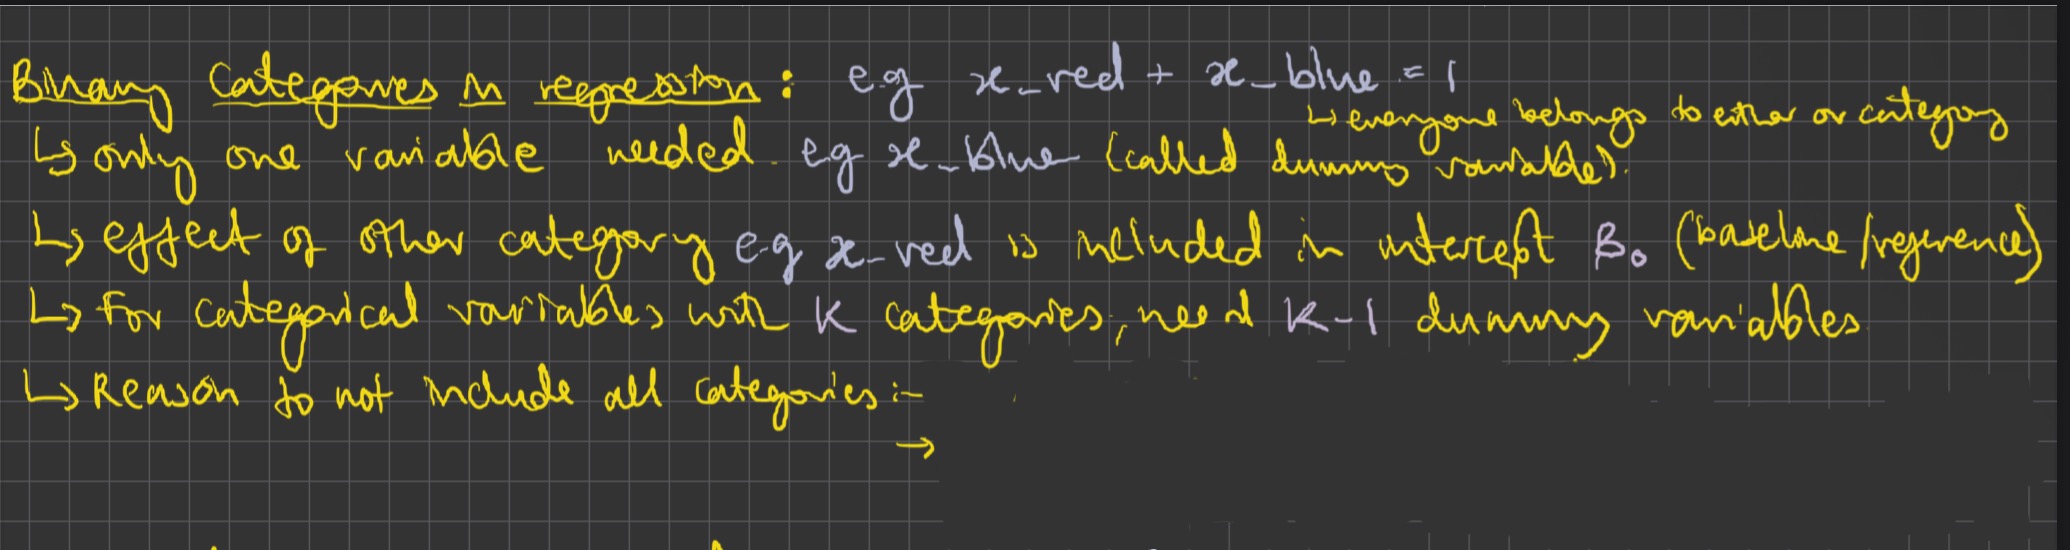 Binary Categories in regression: e.g x_red + x_blue = 1
↳ everyone belongs to either or category
↳ only one variable needed. eg x_blue (called dummy variable).
↳ effect of other category e.g x_red is included in intercept β₀ (baseline/reference)
↳ For categorical variables with K categories, need K-1 dummy variables.
↳ Reason to not include all categories :-
→